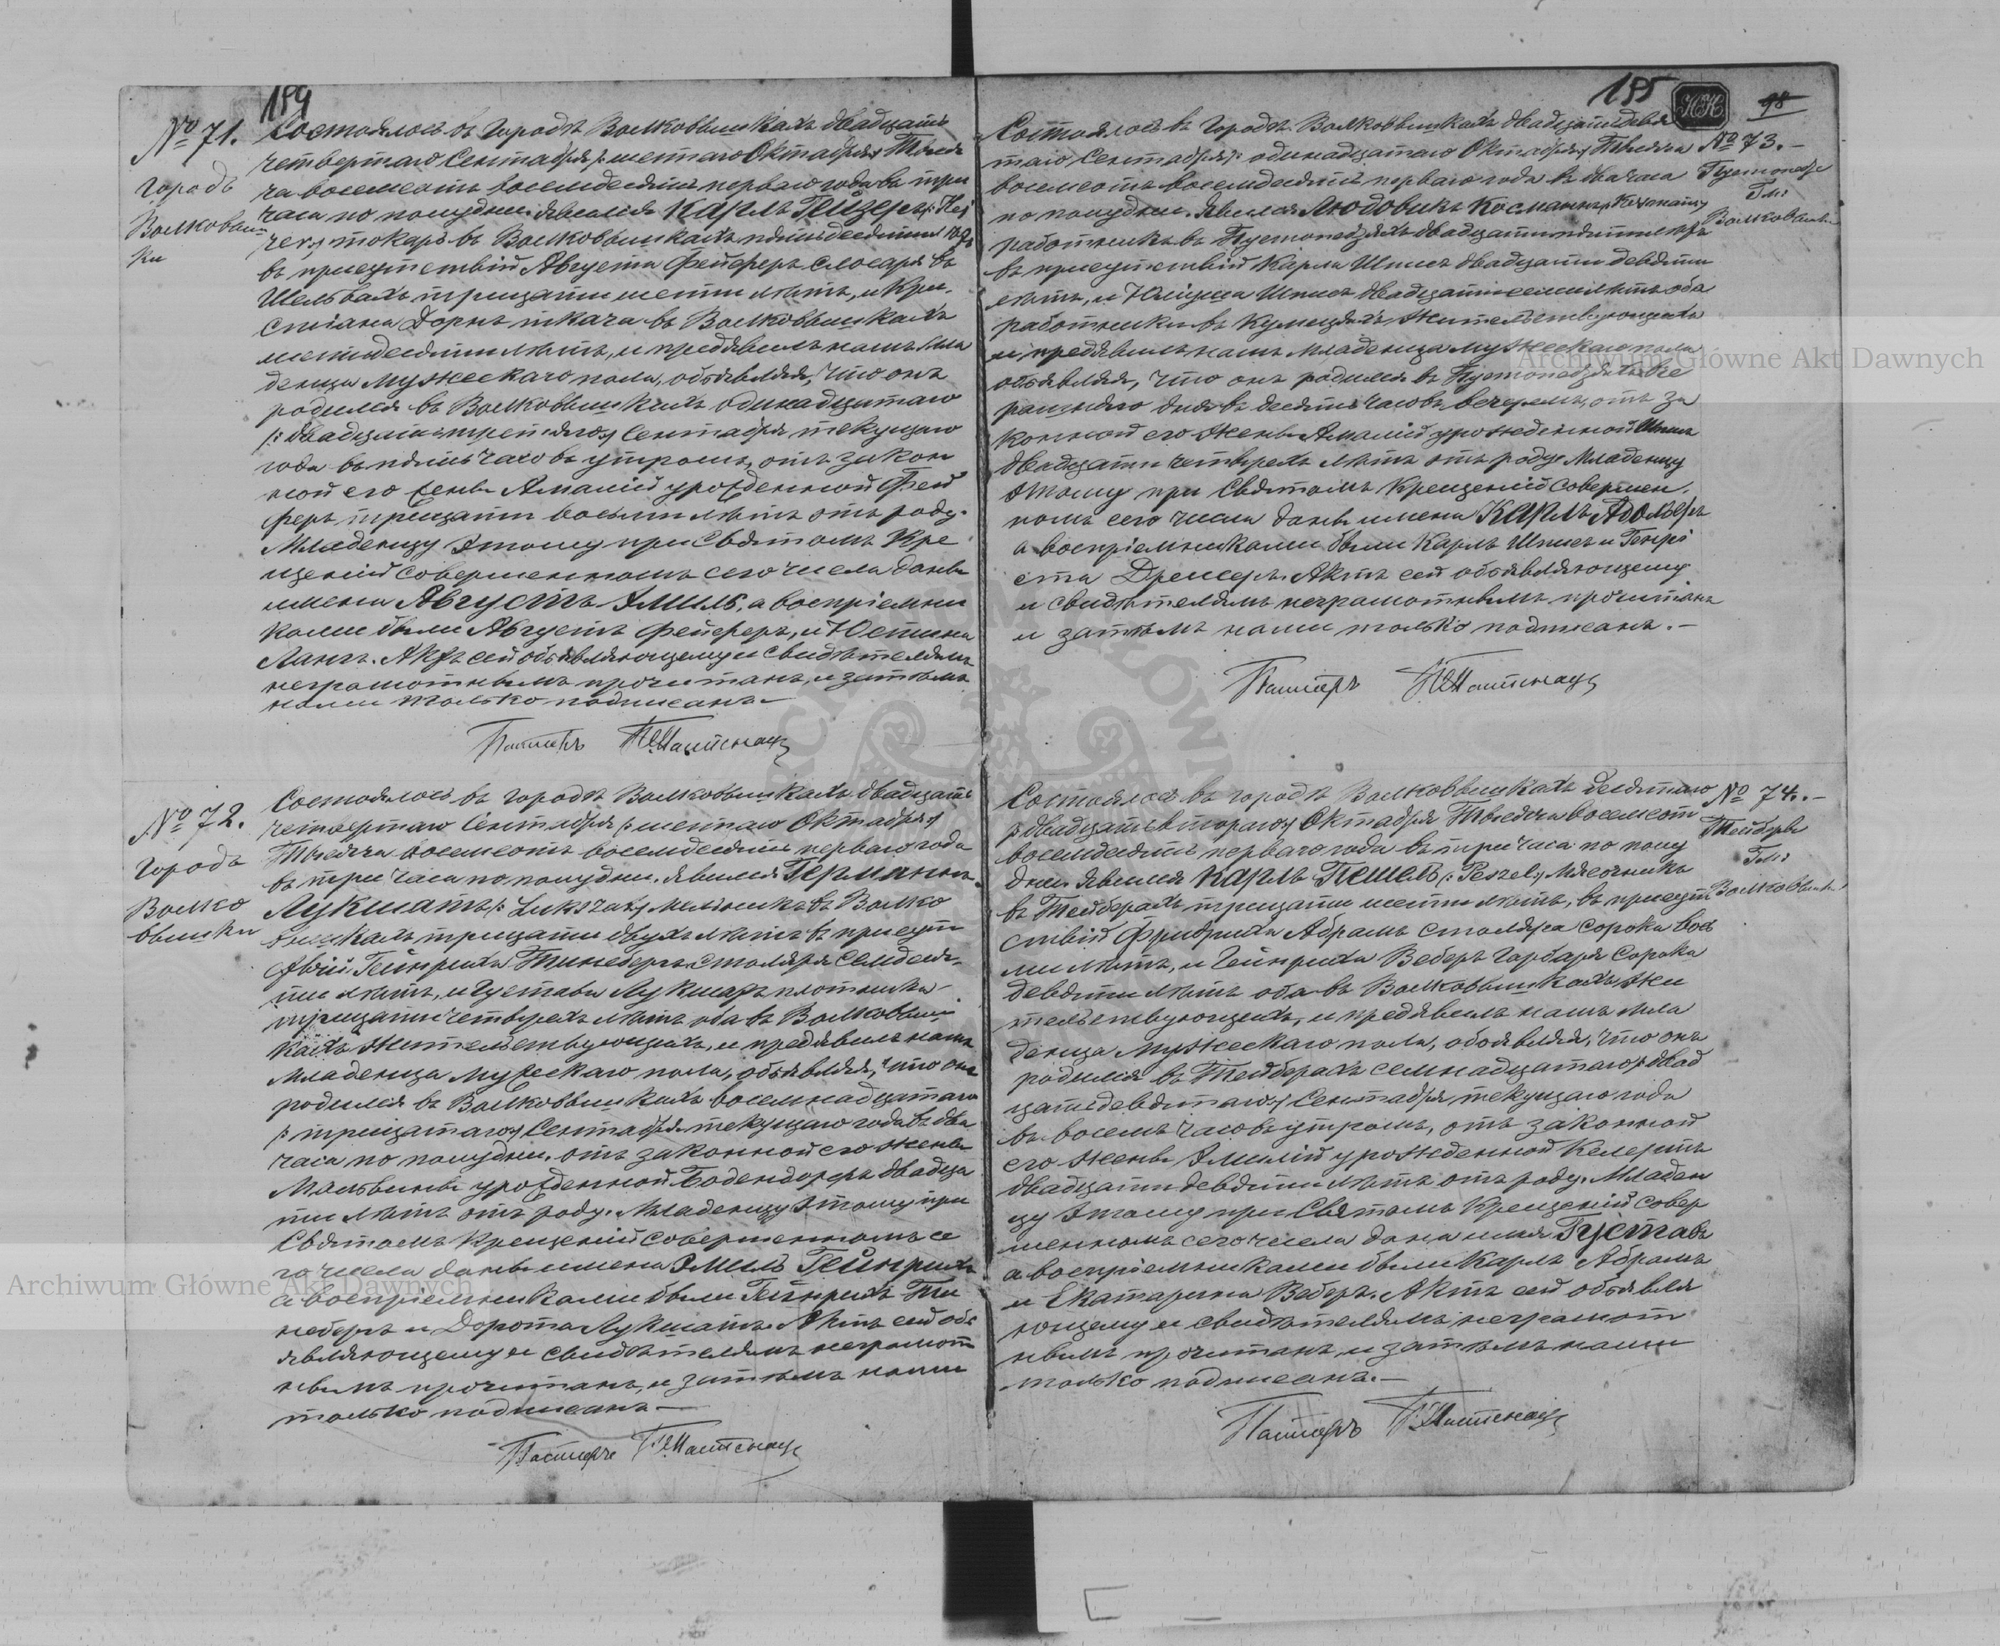 184
№ 71.
Городъ
Волковыш
ки
Состоялось въ городѣ Волковышкахъ двадцать
четвертаго Сентября /: шестаго Октября :/ Тыся
ча восемьсотъ восемдесятъ перваго года въ три
часа по полудни. явился Карлъ
токарь въ Волковышкахъ пятьдесятъ
въ присутствіи Августа Фейферъ слесаря въ
Шельвахъ тридцати шести лѣтъ, и Кри
стіана Дорнъ ткача въ Волковышкахъ
шестидесяти лѣтъ, и предъявилъ намъ мла
денца мужескаго пола, объявляя, что онъ
родился въ Волковышкахъ одинадцатаго
/: двадцать третьяго :/ Сентября текущаго
года въ пять часовъ утромъ, отъ закон
ной его жены Амаліи урожденной Фей
феръ, тридцати восьми лѣтъ отъ роду.
Младенцу этому при Святомъ Кре
щеніи совершенномъ сего числа даны
имена Августъ Эмиль, а воспріемни
ками были Августъ Фейферъ, и Юстина
Лангъ. Актъ сей объявляющему и свидѣтелямъ
неграмотнымъ прочитанъ, и затѣмъ
нами только подписанъ.
Пасторъ
№ 72.
Городъ
Волко
вышки
Состоялось въ городѣ Волковышкахъ двадцать
четвертаго Сентября /: шестаго Октября :/
Тысяча восемьсотъ восемдесятъ перваго года
въ три часа по полудни. явился Германъ
Лукшатъ /: Lukszat :/ мельникъ въ Волко
вышкахъ тридцати двухъ лѣтъ въ присут
ствіи Гейнриха Тинебергъ столяра семидеся
ти лѣтъ, и Густава Лукшатъ плотника
тридцати четырехъ лѣтъ оба въ Волковыш
кахъ жительствующихъ, и предъявилъ намъ
младенца мужескаго пола, объявляя, что онъ
родился въ Волковышкахъ восемнадцатаго
/: тридцатаго :/ Сентября текущаго года въ два
часа по полудни. отъ законной его жены
Мальвины урожденной Бодендорфъ двадца
ти лѣтъ отъ роду. Младенцу этому при
Святомъ Крещеніи совершенномъ се
го числа даны имена Эмиль Гейнрихъ
а воспріемниками были Гейнрихъ Ти
небергъ и Дорота Лукшатъ. Актъ сей объ
являющему и свидѣтелямъ неграмот
нымъ прочитанъ, и затѣмъ нами
только подписанъ.
Пасторъ
185
НК
98
Состоялось въ городѣ Волковышкахъ двадцать девя
таго Сентября /: одинадцатаго Октября :/ Тысяча
восемьсотъ восемдесятъ перваго года въ два часа
по полудни. Явился Людовикъ Косманъ
работникъ въ двадцати пяти лѣтъ
въ присутствіи Карла Шписъ двадцати девяти
лѣтъ, и Юліуша Шписъ двадцати семи лѣтъ оба
работники въ жительствующихъ
и, предъявилъ намъ младенца мужескаго пола
объявляя, что онъ родился въ
дня въ десять часовъ вечеромъ, отъ за
конной его жены Амаліи урожденной Шписъ
двадцати четырехъ лѣтъ отъ роду Младенцу
этому при Святомъ Крещеніи совершен
номъ сего числа даны имена Карлъ Адольфъ
а воспріемниками были Карлъ Шписъ и Генрі
ета Дресслеръ. Актъ сей объявляющему
и свидѣтелямъ неграмотнымъ прочитанъ
и затѣмъ нами только подписанъ.
№ 73.
Гм:
Волковышки
Пасторъ
Состоялось въ городѣ Волковышкахъ десятаго
/: двадцать втораго :/ Октября Тысяча восемьсотъ
восемдесятъ перваго года въ три часа по полу
дни. явился Карлъ Пешель /: Peszel :/ Мясникъ
въ Тейберахъ тридцати шести лѣтъ, въ присут
ствіи Фридриха Абрамъ столяра сорока вось
ми лѣтъ, и Гейнриха Веберъ Гарбаря сорока
девяти лѣтъ оба въ Волковышкахъ жи
тельствующихъ, и предъявилъ намъ мла
денца мужескаго пола, объявляя, что онъ
родился въ Тейберахъ семнадцатаго /: двад
цать девятаго :/ Сентября текущаго года
въ восемь часовъ утромъ, отъ законной
его жены Эмиліи урожденной Келертъ
двадцати девяти лѣтъ отъ роду. Младен
цу этому при Святомъ Крещеніи совер
шенномъ сего числа дано имя Густавъ
а воспріемниками были Карлъ Абрамъ
и Екатерина Веберъ. Актъ сей объявля
ющему и свидѣтелямъ неграмот
нымъ прочитанъ и затѣмъ нами
только подписанъ.
№ 74.
Тейберы
Гм:
Волковышки
Пасторъ
Archiwum Główne Akt Dawnych
Archiwum Główne Akt Dawnych